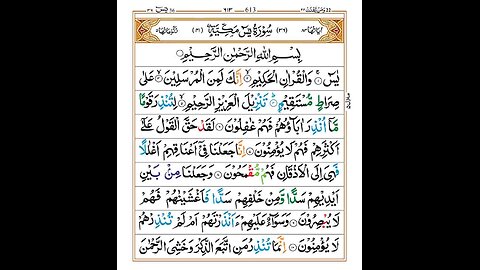 ٦١٣ 613
(٣٦) سُوْرَةُ يٰسٓ مَكِّيَّةٌ (٤١)
بِسْمِ اللّٰهِ الرَّحْمٰنِ الرَّحِيْمِ
يٰسٓ ۚ وَالْقُرْاٰنِ الْحَكِيْمِ ۙ اِنَّكَ لَمِنَ الْمُرْسَلِيْنَ ۙ عَلٰى
صِرَاطٍ مُّسْتَقِيْمٍ ؕ تَنْزِيْلَ الْعَزِيْزِ الرَّحِيْمِ ۙ لِتُنْذِرَ قَوْمًا
مَّاۤ اُنْذِرَ اٰبَآؤُهُمْ فَهُمْ غٰفِلُوْنَ لَقَدْ حَقَّ الْقَوْلُ عَلٰۤى
اَكْثَرِهِمْ فَهُمْ لَا يُؤْمِنُوْنَ اِنَّا جَعَلْنَا فِيْۤ اَعْنَاقِهِمْ اَغْلٰلًا
فَهِيَ اِلَى الْاَذْقَانِ فَهُمْ مُّقْمَحُوْنَ وَجَعَلْنَا مِنْۢ بَيْنِ
اَيْدِيْهِمْ سَدًّا وَّمِنْ خَلْفِهِمْ سَدًّا فَاَغْشَيْنٰهُمْ فَهُمْ
لَا يُبْصِرُوْنَ وَسَوَآءٌ عَلَيْهِمْ ءَاَنْذَرْتَهُمْ اَمْ لَمْ تُنْذِرْهُمْ
لَا يُؤْمِنُوْنَ اِنَّمَا تُنْذِرُ مَنِ اتَّبَعَ الذِّكْرَ وَخَشِيَ الرَّحْمٰنَ